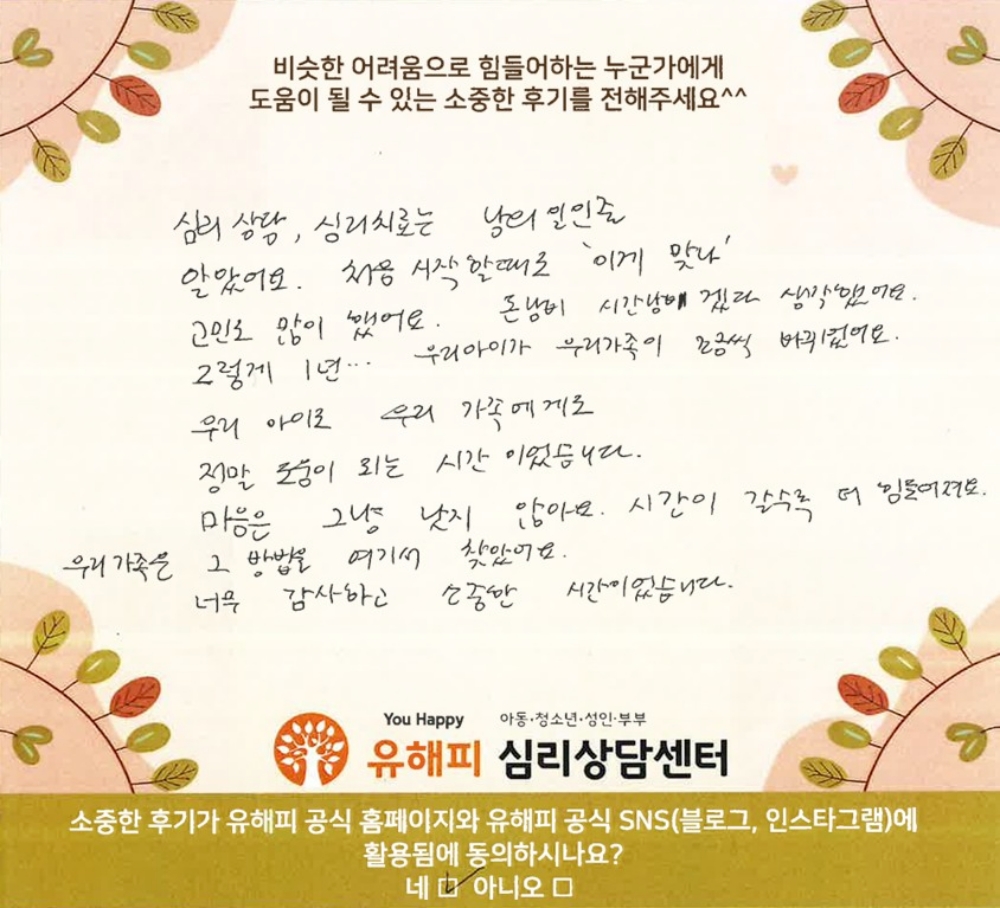 비슷한 어려움으로 힘들어하는 누군가에게
도움이 될 수 있는 소중한 후기를 전해주세요^^
심리 상담, 심리치료는 남의 일인줄
알았어요. 처음 시작할때로 '이게 맞나'
고민도 많이 했어요. 돈낭비 시간낭비 겠다 생각했어요.
그렇게 1년… 우리아이가 우리가족이 조금씩 바뀌었어요.
우리 아이도 우리 가족에게도
정말 도움이 되는 시간 이었습니다.
마음은 그냥 낫지 않아요. 시간이 갈수록 더 힘들어져요.
우리가족은 그 방법을 여기서 찾았어요.
너무 감사하고 소중한 시간이었습니다.
You Happy 아동·청소년·성인·부부
유해피 심리상담센터
소중한 후기가 유해피 공식 홈페이지와 유해피 공식 SNS(블로그, 인스타그램)에
활용됨에 동의하시나요?
네 ☑ 아니오 □